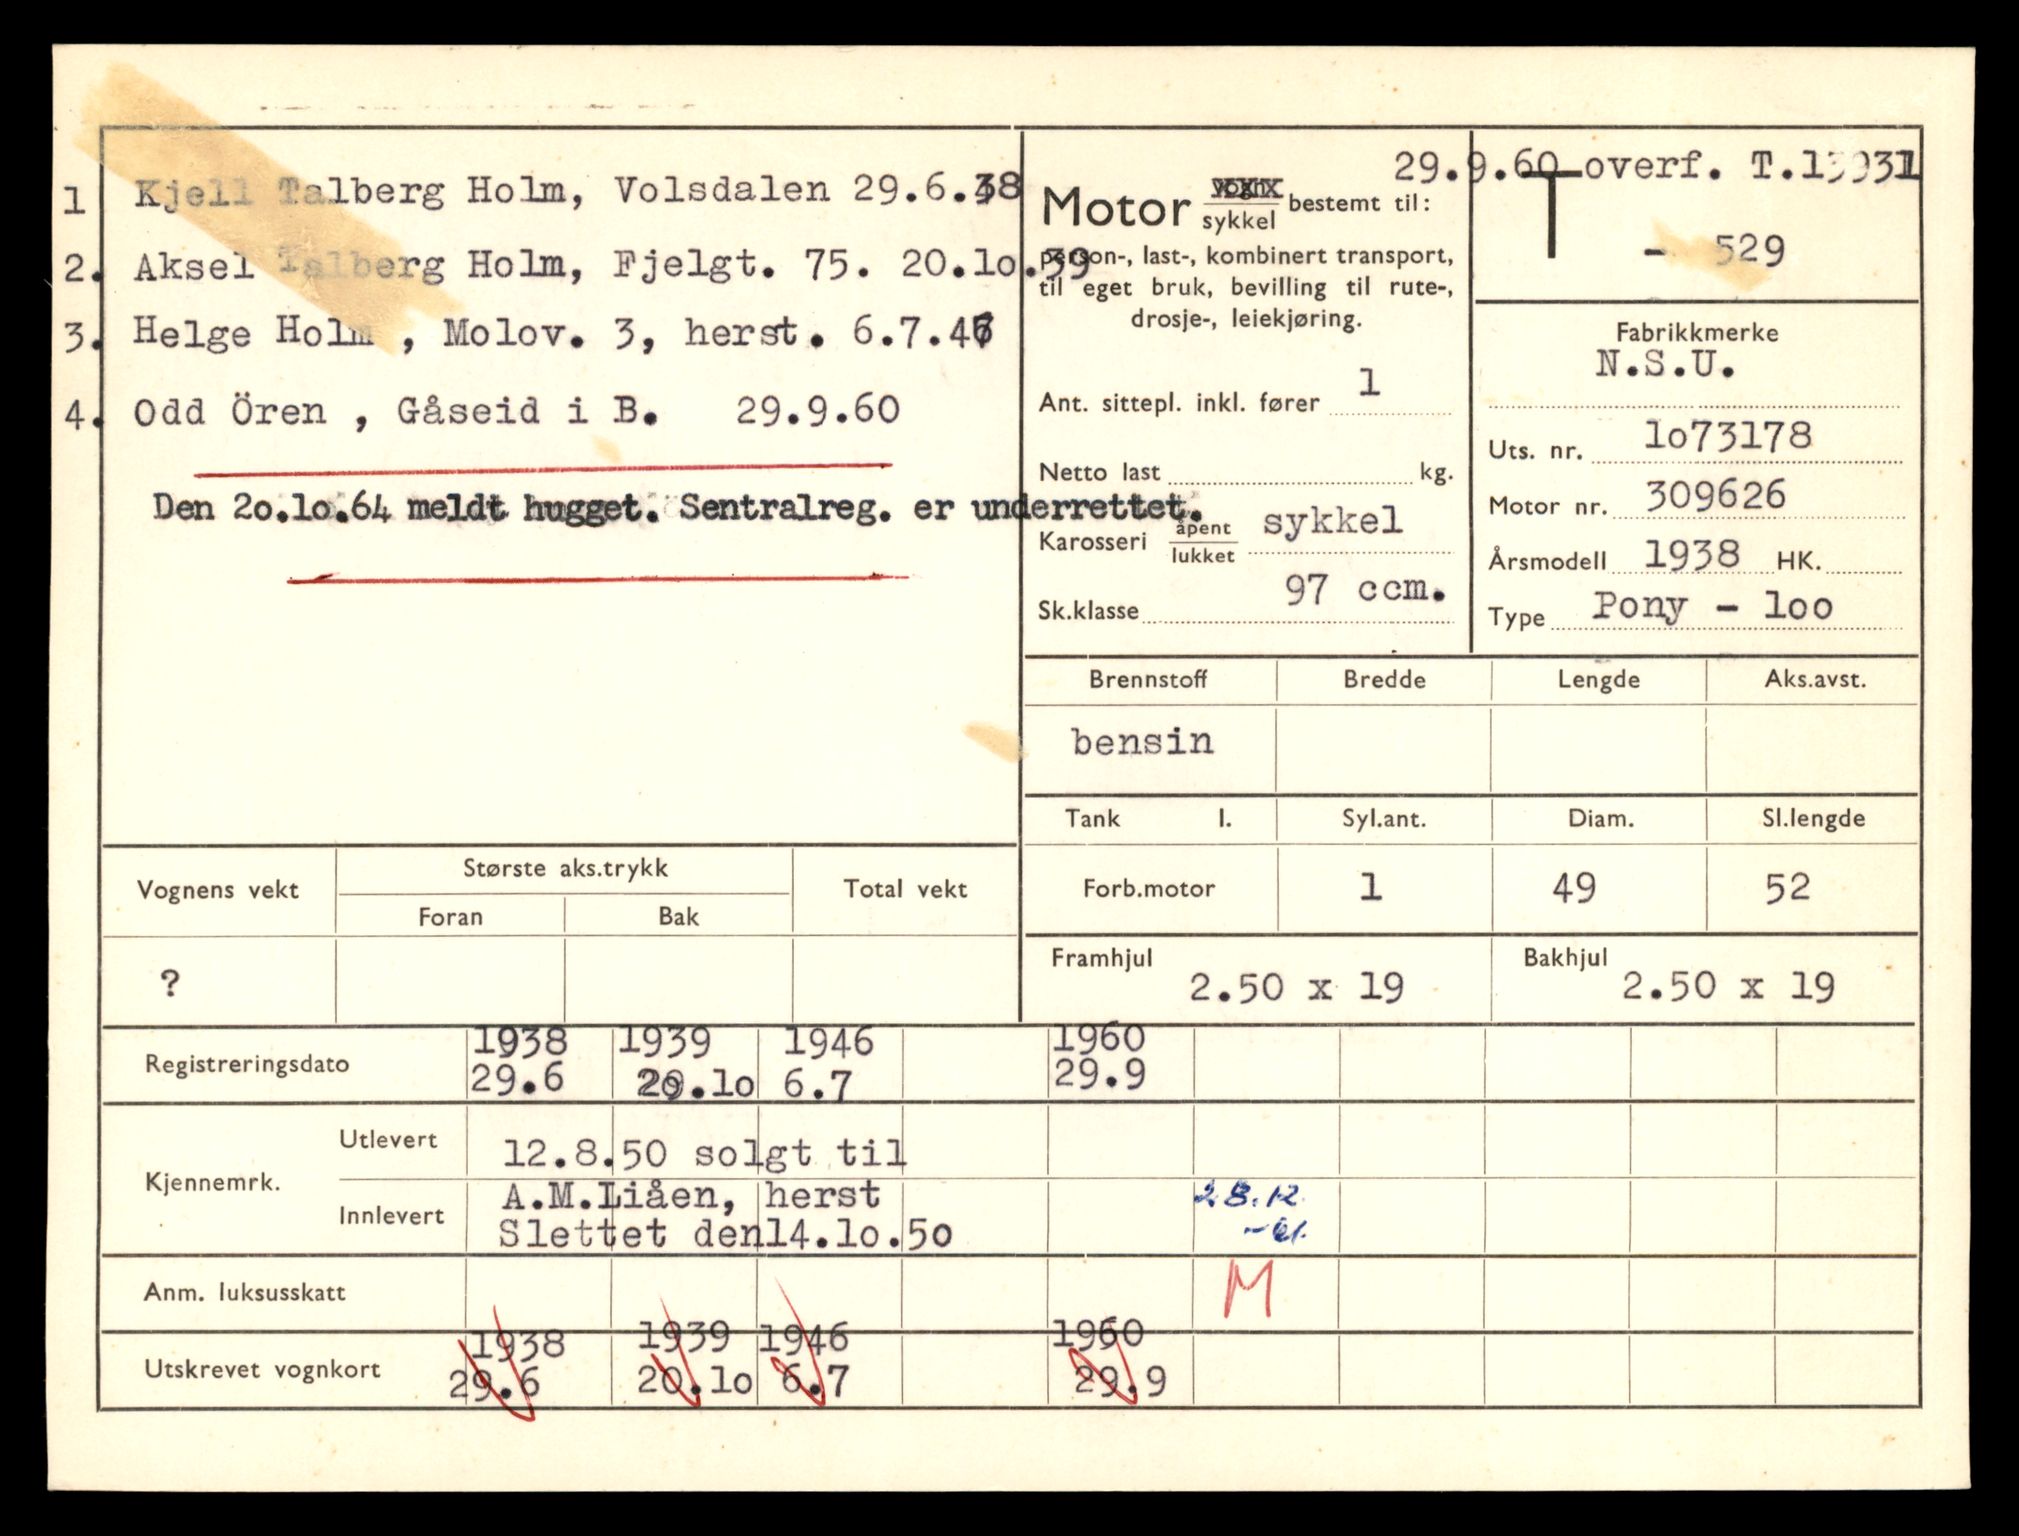 1 Kjell Talberg Holm, Volsdalen 29.6.38
2. Aksel Talberg Holm, Fjelgt. 75. 20.lo.39
3. Helge Holm , Molov. 3, herst. 6.7.46
4. Odd Ören , Gåseid i B. 29.9.60
Den 2o.lo.64 meldt hugget. Sentralreg. er underrettet.
Motor vogn
sykkel bestemt til:
person-, last-, kombinert transport,
til eget bruk, bevilling til rute-,
drosje-, leiekjøring.
Ant. sittepl. inkl. fører 1
Netto last kg.
Karosseri åpent
lukket sykkel
Sk.klasse 97 ccm.
29.9.60 overf. T.13931
T - 529
Fabrikkmerke
N.S.U.
Uts. nr. lo73178
Motor nr. 309626
Årsmodell 1938 HK.
Type Pony - loo
Brennstoff Bredde Lengde Aks.avst.
bensin
Tank l. Syl.ant. Diam. Sl.lengde
Forb.motor 1 49 52
Framhjul 2.50 x 19 Bakhjul 2.50 x 19
Vognens vekt Største aks.trykk Total vekt
Foran Bak
?
Registreringsdato 1938 1939 1946 1960
29.6 20.lo 6.7 29.9
Kjennemrk. Utlevert 12.8.50 solgt til
Innlevert A.M.Liåen, herst 28.12
Slettet den14.lo.50
Anm. luksusskatt M
Utskrevet vognkort 1938 1939 1946 1960
29.6 20.lo 6.7 29.9